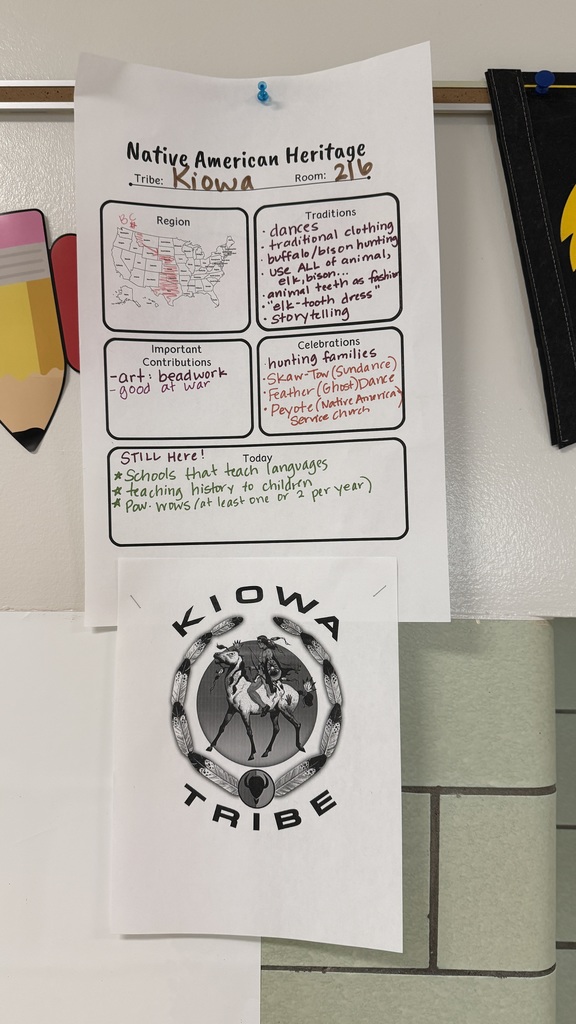 Native American Heritage
Tribe: Kiowa Room: 216
Region
BC
Traditions
· dances
· traditional clothing
· buffalo/bison hunting
· use ALL of animal,
elk, bison...
· animal teeth as fashion
· "elk-tooth dress"
· storytelling
Important
Contributions
-art: beadwork
-good at war
Celebrations
· hunting families
· Skaw-Tow (Sundance)
· Feather (Ghost) Dance
· Peyote (Native America)
Service church
STILL Here! Today
* Schools that teach languages
* teaching history to children
* Pow-wows (at least one or 2 per year)
KIOWA
TRIBE